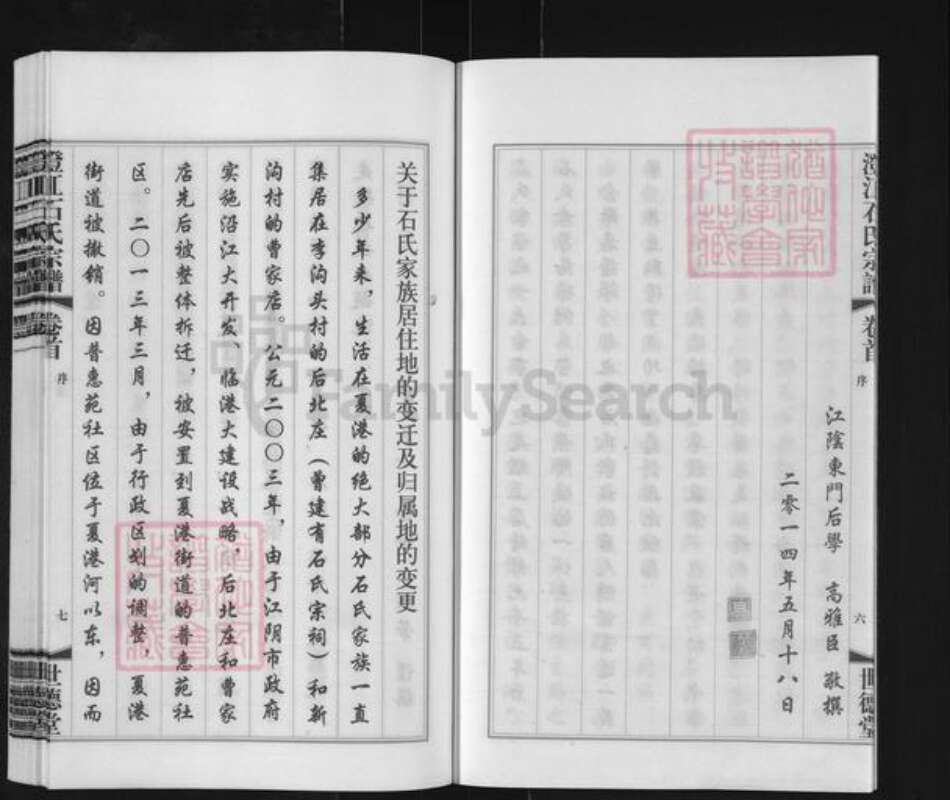 澄江石氏宗譜
卷首
序
六
世德堂
江陰東門后學 高雅臣 敬撰
二零一四年五月十八日
关于石氏家族居住地的变迁及归属地的变更
多少年来，生活在夏港的绝大部分石氏家族一直
集居在李沟头村的后北庄（曾建有石氏宗祠）和新
沟村的曹家店。公元二〇〇三年，由于江阴市政府
实施沿江大开发、临港大建设战略，后北庄和曹家
店先后被整体拆迁，被安置到夏港街道的普惠苑社
区。二〇一三年三月，由于行政区划的调整，夏港
街道被撤销。因普惠苑社区位于夏港河以东，因而
澄江石氏宗譜
卷首
序
七
世德堂
FamilySearch